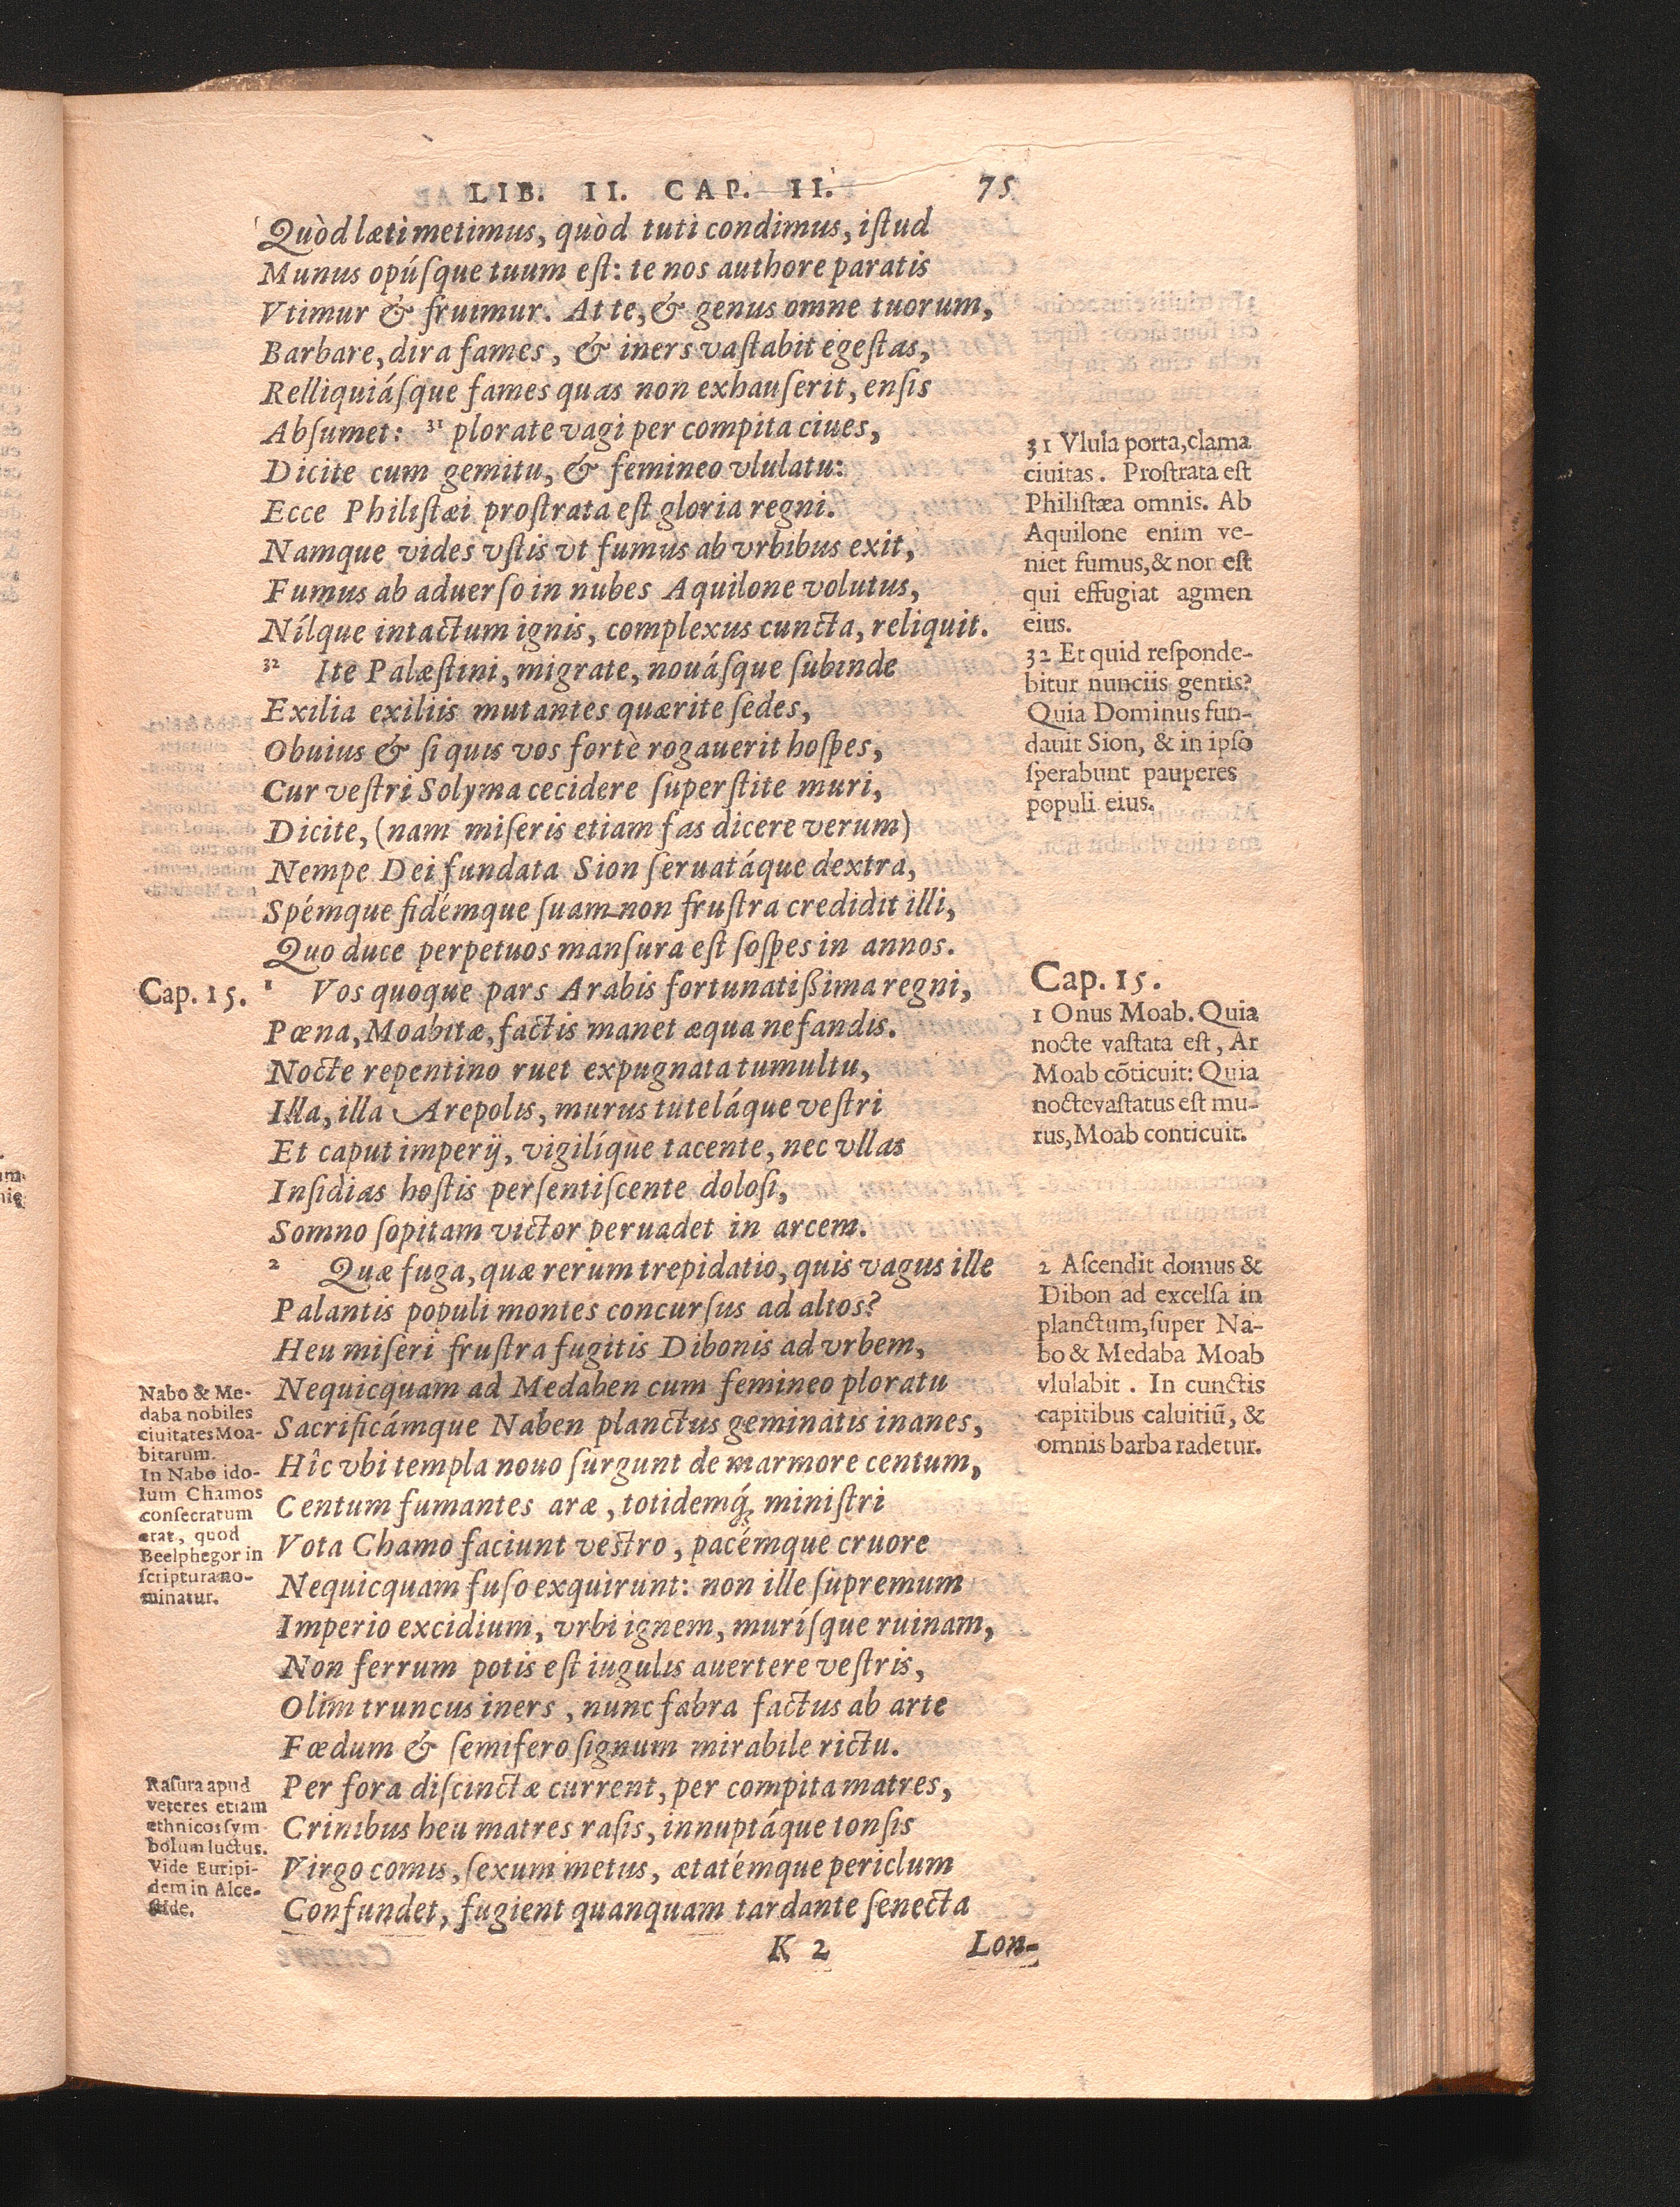 LIB. II. CAP. II. 75
Quòd læti metimus, quòd tuti condimus, iſtud
Munus opúſque tuum eſt: te nos authore paratis
Vtimur & fruimur. At te, & genus omne tuorum,
Barbare, dira fames, & iners vaſtabit egeſtas,
Relliquiáſque fames quas non exhauſerit, enſis
Abſumet: 31 plorate vagi per compita ciues,
Dicite cum gemitu, & femineo vlulatu:
Ecce Philiſtæi proſtrata eſt gloria regni.
Namque vides vſtis vt fumus ab vrbibus exit,
Fumus ab aduerſo in nubes Aquilone volutus,
Nílque intactum ignis, complexus cuncta, reliquit.
32 Ite Palæſtini, migrate, nouáſque ſubinde
Exilia exiliis mutantes quærite ſedes,
Obuius & ſi quis vos fortè rogauerit hoſpes,
Cur veſtri Solyma cecidere ſuperſtite muri,
Dicite, (nam miſeris etiam fas dicere verum)
Nempe Dei fundata Sion ſeruatáque dextra,
Spémque fidémque ſuam non fruſtra credidit illi,
Quo duce perpetuos manſura eſt ſoſpes in annos.
Cap. 15. 1 Vos quoque pars Arabis fortunatiſſima regni,
Pœna, Moabitæ, factis manet æqua nefandis.
Nocte repentino ruet expugnata tumultu,
Illa, illa Arepolis, murus tuteláque veſtri
Et caput imperij, vigilíque tacente, nec vllas
Inſidias hoſtis perſentiſcente doloſi,
Somno ſopitam victor peruadet in arcem.
2 Quæ fuga, quæ rerum trepidatio, quis vagus ille
Palantis populi montes concurſus ad altos?
Heu miſeri fruſtra fugitis Dibonis ad vrbem,
Nequicquam ad Medaben cum femineo ploratu
Sacrificámque Naben planctus geminatis inanes,
Hîc vbi templa nouo ſurgunt de marmore centum,
Centum fumantes aræ, totidemq́ꝫ miniſtri
Vota Chamo faciunt veſtro, pacémque cruore
Nequicquam fuſo exquirunt: non ille ſupremum
Imperio excidium, vrbi ignem, muríſque ruinam,
Non ferrum potis eſt iugulis auertere veſtris,
Olim truncus iners, nunc fabra factus ab arte
Fœdum & ſemifero ſignum mirabile rictu.
Per fora diſcinctæ current, per compita matres,
Crinibus heu matres raſis, innuptáque tonſis
Virgo comis, ſexum metus, ætatémque periclum
Confundet, fugient quanquam tardante ſenecta
K 2 Lon-
31 Vlula porta, clama
ciuitas. Proſtrata eſt
Philiſtæa omnis. Ab
Aquilone enim ve-
niet fumus, & non eſt
qui effugiat agmen
eius.
32 Et quid reſponde-
bitur nunciis gentis?
Quia Dominus fun-
dauit Sion, & in ipſo
ſperabunt pauperes
populi eius.
Cap. 15.
1 Onus Moab. Quia
nocte vaſtata eſt, Ar
Moab cõticuit: Quia
nocte vaſtatus eſt mu-
rus, Moab conticuit.
2 Aſcendit domus &
Dibon ad excelſa in
planctum, ſuper Na-
bo & Medaba Moab
vlulabit. In cunctis
capitibus caluitiũ, &
omnis barba radetur.
Nabo & Me-
daba nobiles
ciuitates Moa-
bitarum.
In Nabo ido-
lum Chamos
conſecratum
erat, quod
Beelphegor in
ſcriptura no-
minatur.
Raſura apud
veteres etiam
ethnicos ſym-
bolum luctus.
Vide Euripi-
dem in Alce-
ſtide.